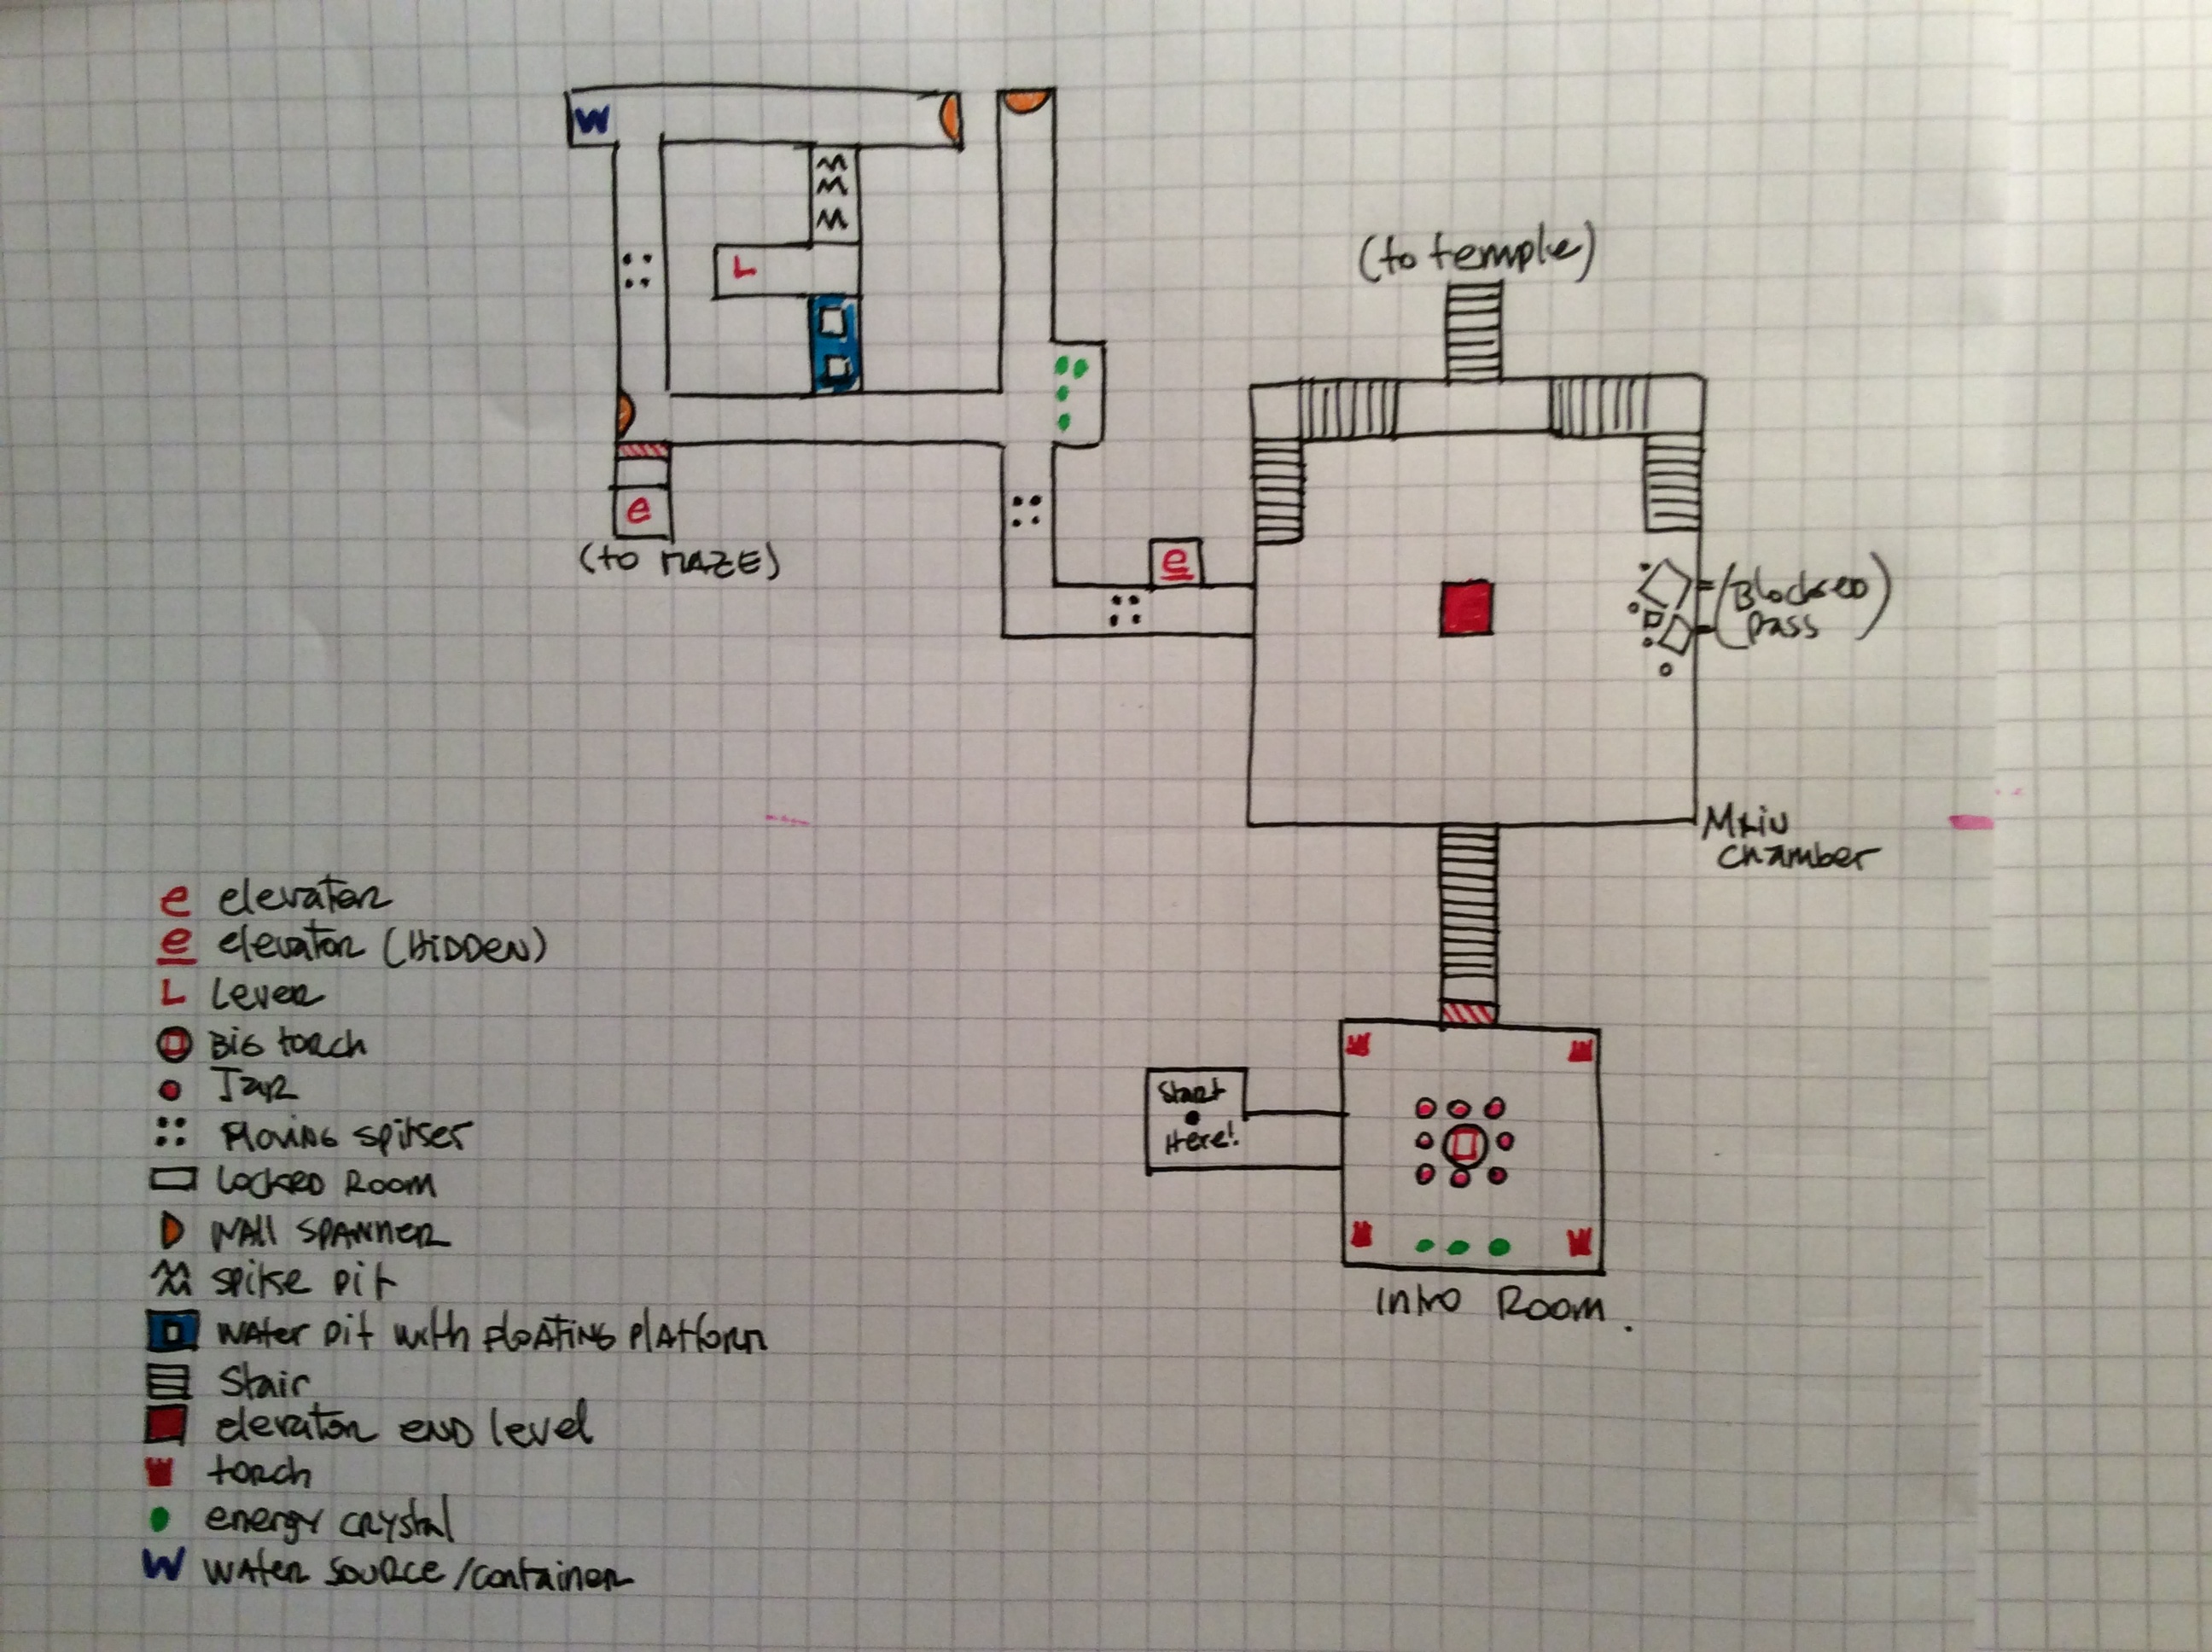 W
L
(to temple)
e
(to MAZE)
e
(Blocked
pass)
Main
chamber
Start
Here!
Intro Room.
e elevator
e elevator (HiDDEN)
L Lever
Big torch
Jar
Moving spikes
Locked Room
Wall SPANNER
Spike pit
Water pit with floating platform
Stair
elevator END level
torch
energy crystal
W Water source/container